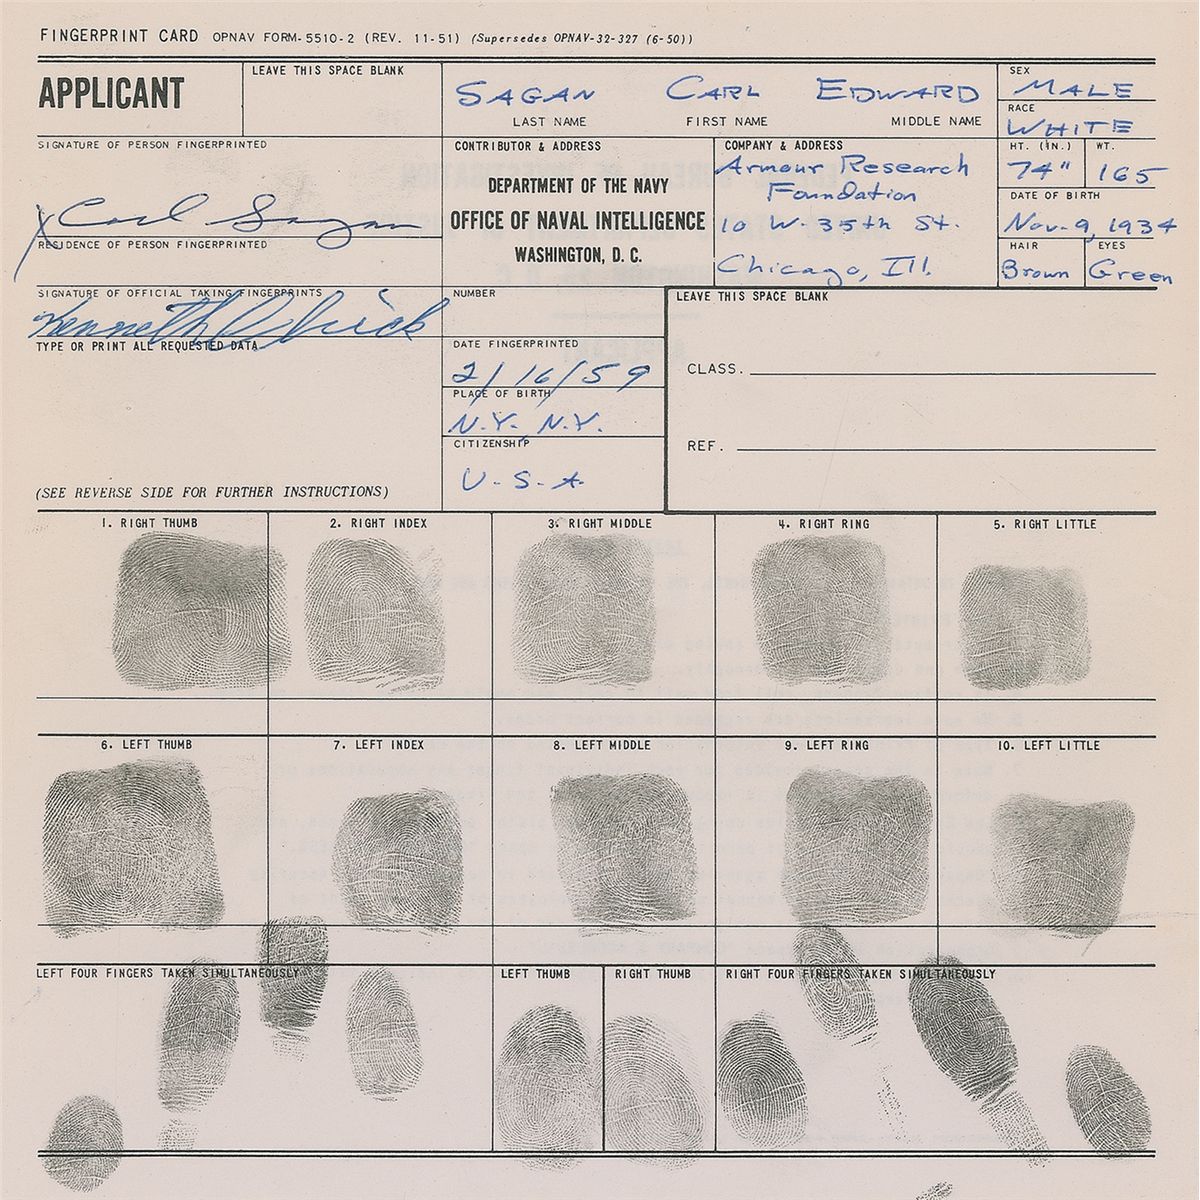 FINGERPRINT CARD OPNAV FORM-5510-2 (REV. 11-51) (Supersedes OPNAV-32-327 (6-50))
APPLICANT
LEAVE THIS SPACE BLANK
SAGAN CARL EDWARD
LAST NAME FIRST NAME MIDDLE NAME
SEX
MALE
RACE
WHITE
SIGNATURE OF PERSON FINGERPRINTED
x Carl Sagan
CONTRIBUTOR & ADDRESS
DEPARTMENT OF THE NAVY
OFFICE OF NAVAL INTELLIGENCE
WASHINGTON, D. C.
COMPANY & ADDRESS
Armour Research
Foundation
10 W. 35th St.
Chicago, Ill.
HT. (IN.) WT.
74" 165
DATE OF BIRTH
Nov. 9, 1934
HAIR EYES
Brown Green
RESIDENCE OF PERSON FINGERPRINTED
SIGNATURE OF OFFICIAL TAKING FINGERPRINTS
Kenneth
TYPE OR PRINT ALL REQUESTED DATA
(SEE REVERSE SIDE FOR FURTHER INSTRUCTIONS)
NUMBER
DATE FINGERPRINTED
2/16/59
PLACE OF BIRTH
N.Y. N.Y.
CITIZENSHIP
U.S.A.
LEAVE THIS SPACE BLANK
CLASS.
REF.
1. RIGHT THUMB 2. RIGHT INDEX 3. RIGHT MIDDLE 4. RIGHT RING 5. RIGHT LITTLE
6. LEFT THUMB 7. LEFT INDEX 8. LEFT MIDDLE 9. LEFT RING 10. LEFT LITTLE
LEFT FOUR FINGERS TAKEN SIMULTANEOUSLY LEFT THUMB RIGHT THUMB RIGHT FOUR FINGERS TAKEN SIMULTANEOUSLY